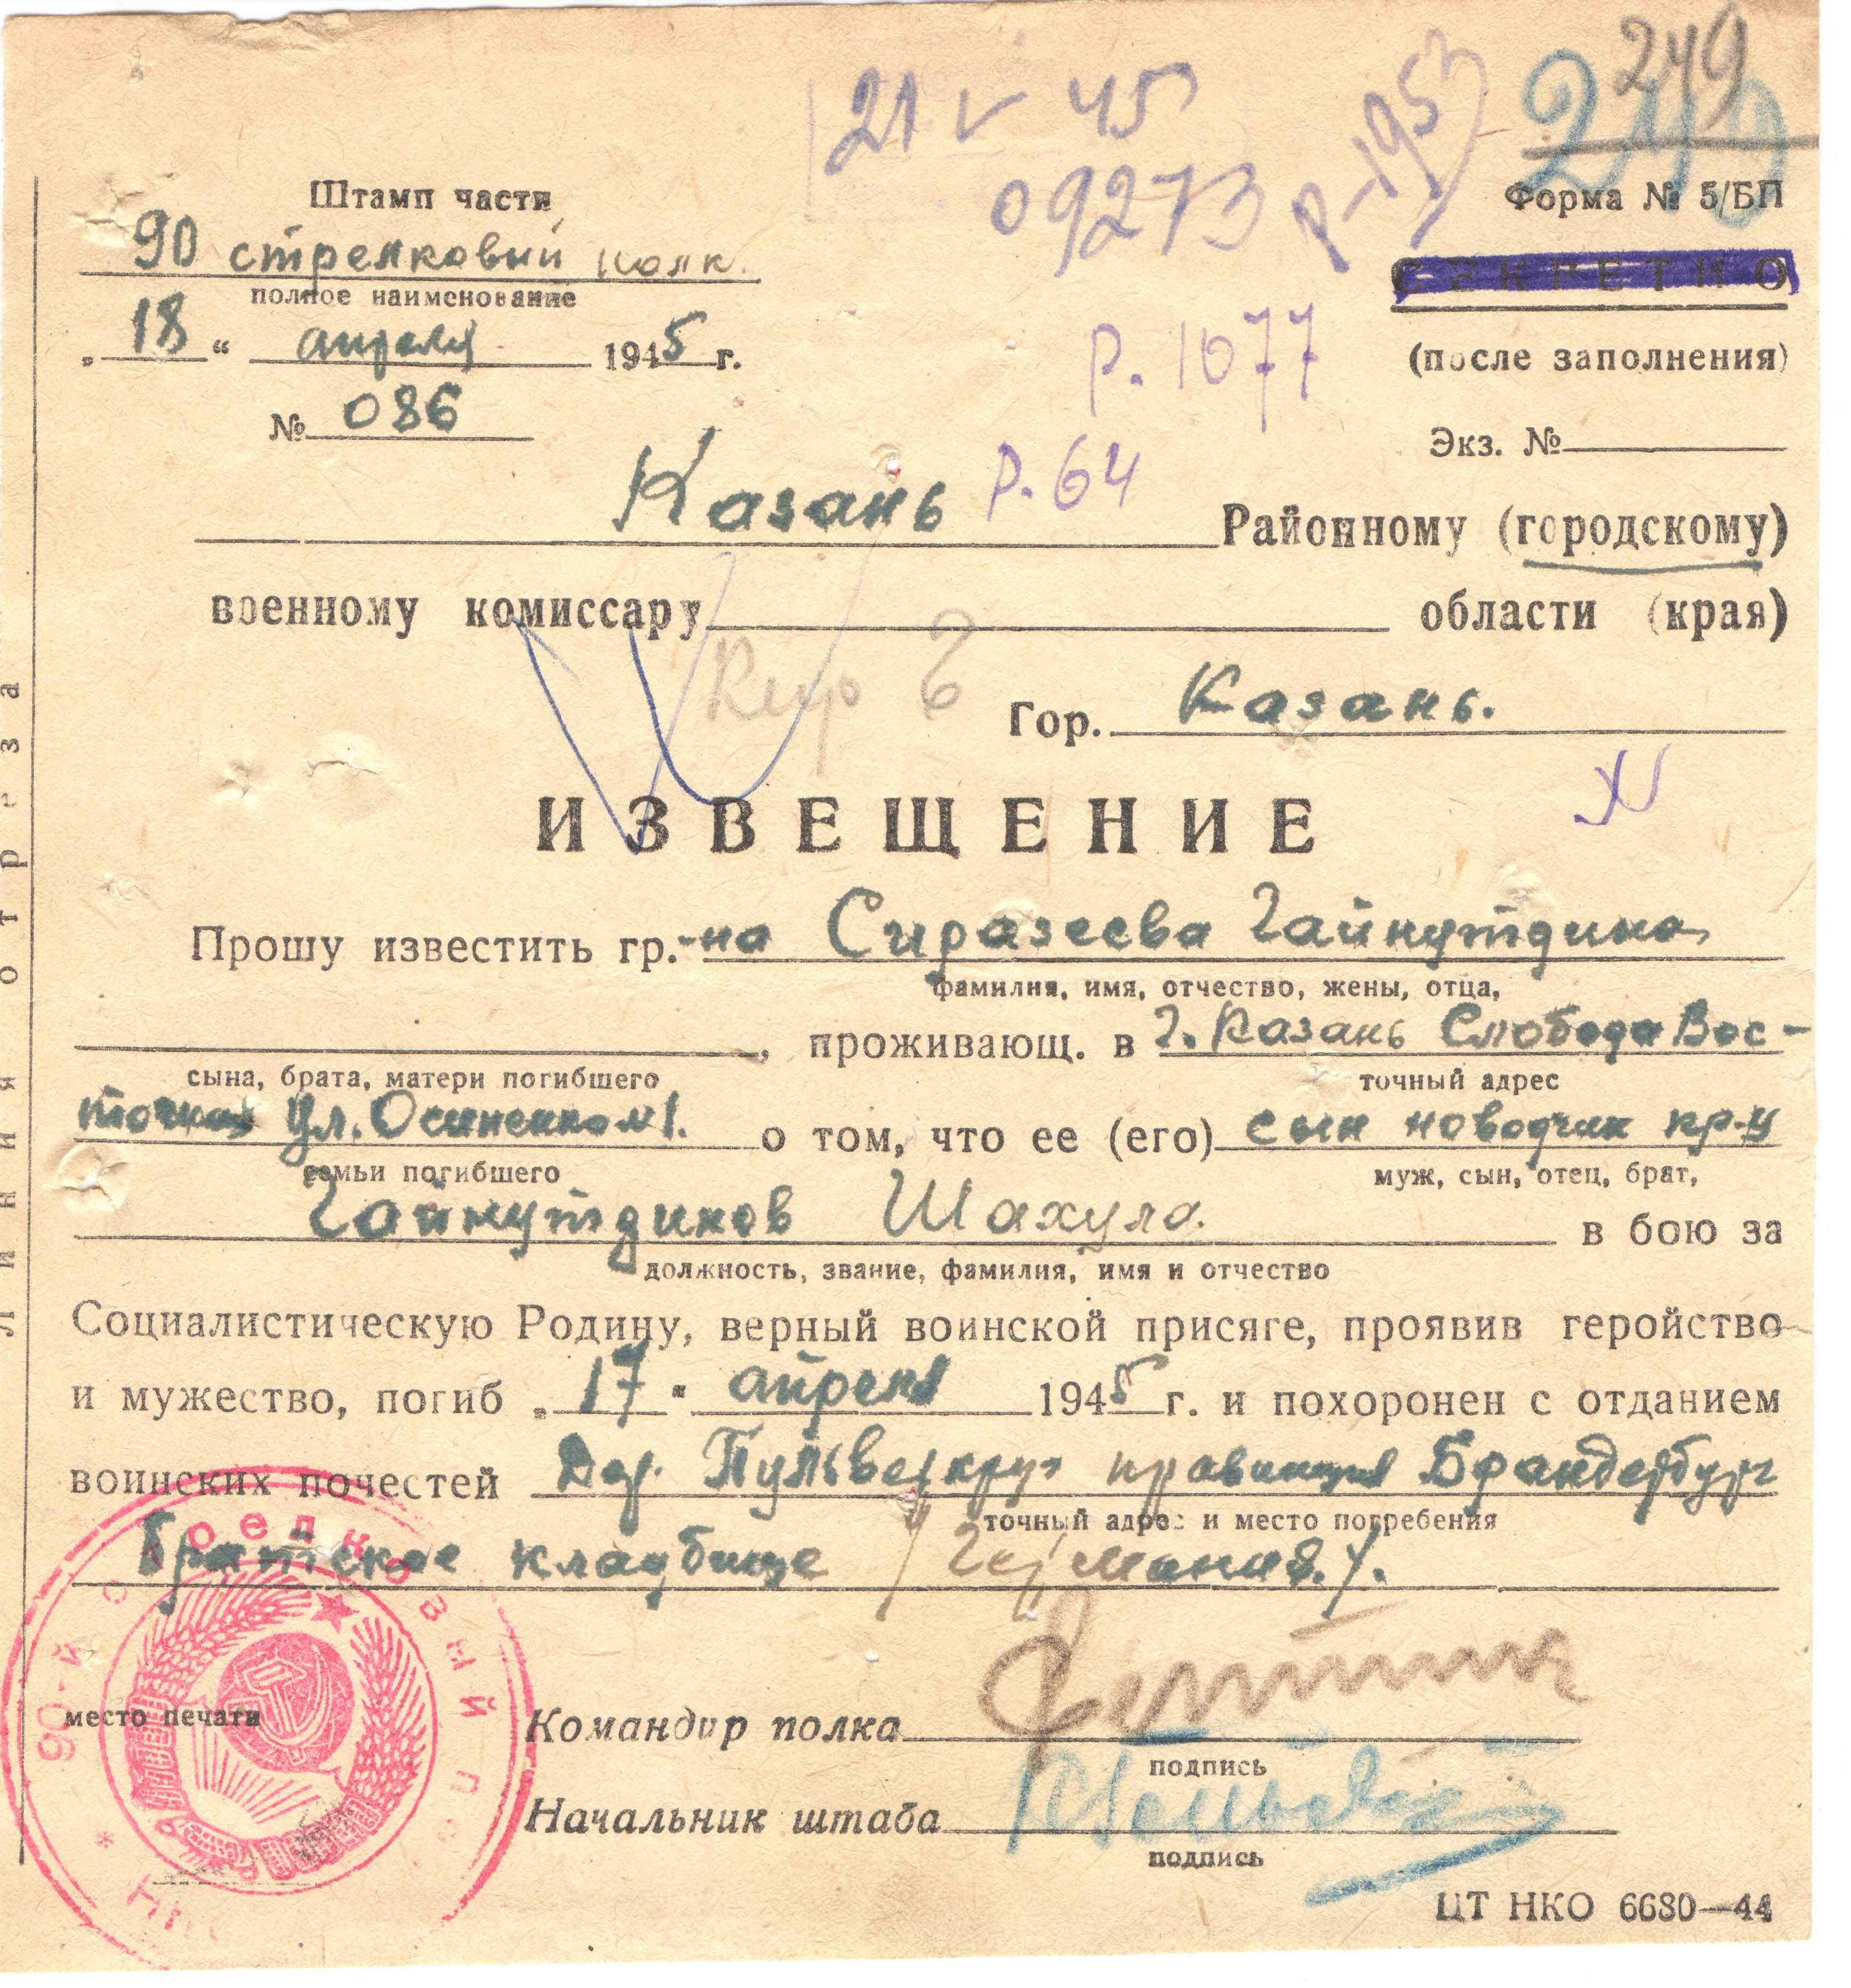 249
249
21 V 45
09273
Р-195
Штамп части
Форма № 5/БП
90 стрелковый полк.
СЕКРЕТНО
полное наименование
„18“ апреля 1945 г.
Р. 1077
(после заполнения)
№ 086
Экз. №
Казань Р. 64 Районному (городскому)
военному комиссару области (края)
Кир
Гор. Казань.
ИЗВЕЩЕНИЕ
Прошу известить гр.-на Сиразеева Гайнутдина
фамилия, имя, отчество, жены, отца,
, проживающ. в г. Казань Слобода Вос-
сына, брата, матери погибшего точный адрес
точная ул. Осипенко №1. о том, что ее (его) сын наводчик кр-ц
семьи погибшего муж, сын, отец, брат,
Гайнутдинов Шахула. в бою за
должность, звание, фамилия, имя и отчество
Социалистическую Родину, верный воинской присяге, проявив геройство
и мужество, погиб „17“ апреля 1945 г. и похоронен с отданием
воинских почестей Дер. Пульверкруг провинция Бранденбург
точный адрес и место погребения
братское кладбище /Германия./.
90-й стрелковый
НКО
место печати
Командир полка
подпись
Начальник штаба
подпись
ЦТ НКО 6680—44
Линия отреза